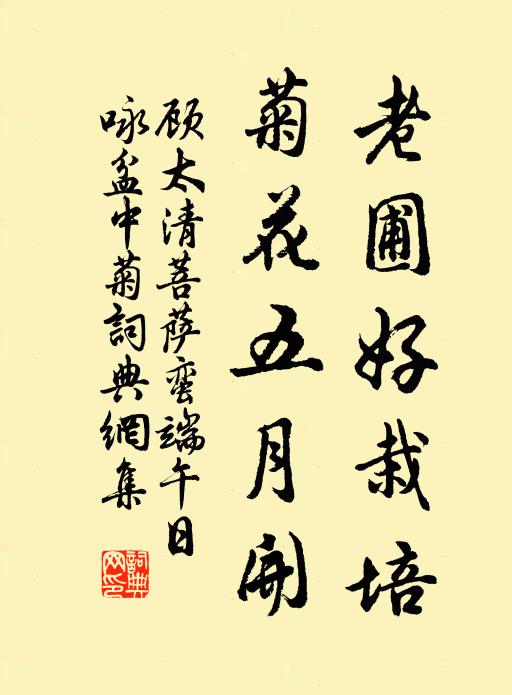 老圃好栽培
菊花五月開
顾太清菩萨蛮端午日
咏盆中菊詞典網集
詞典
网印